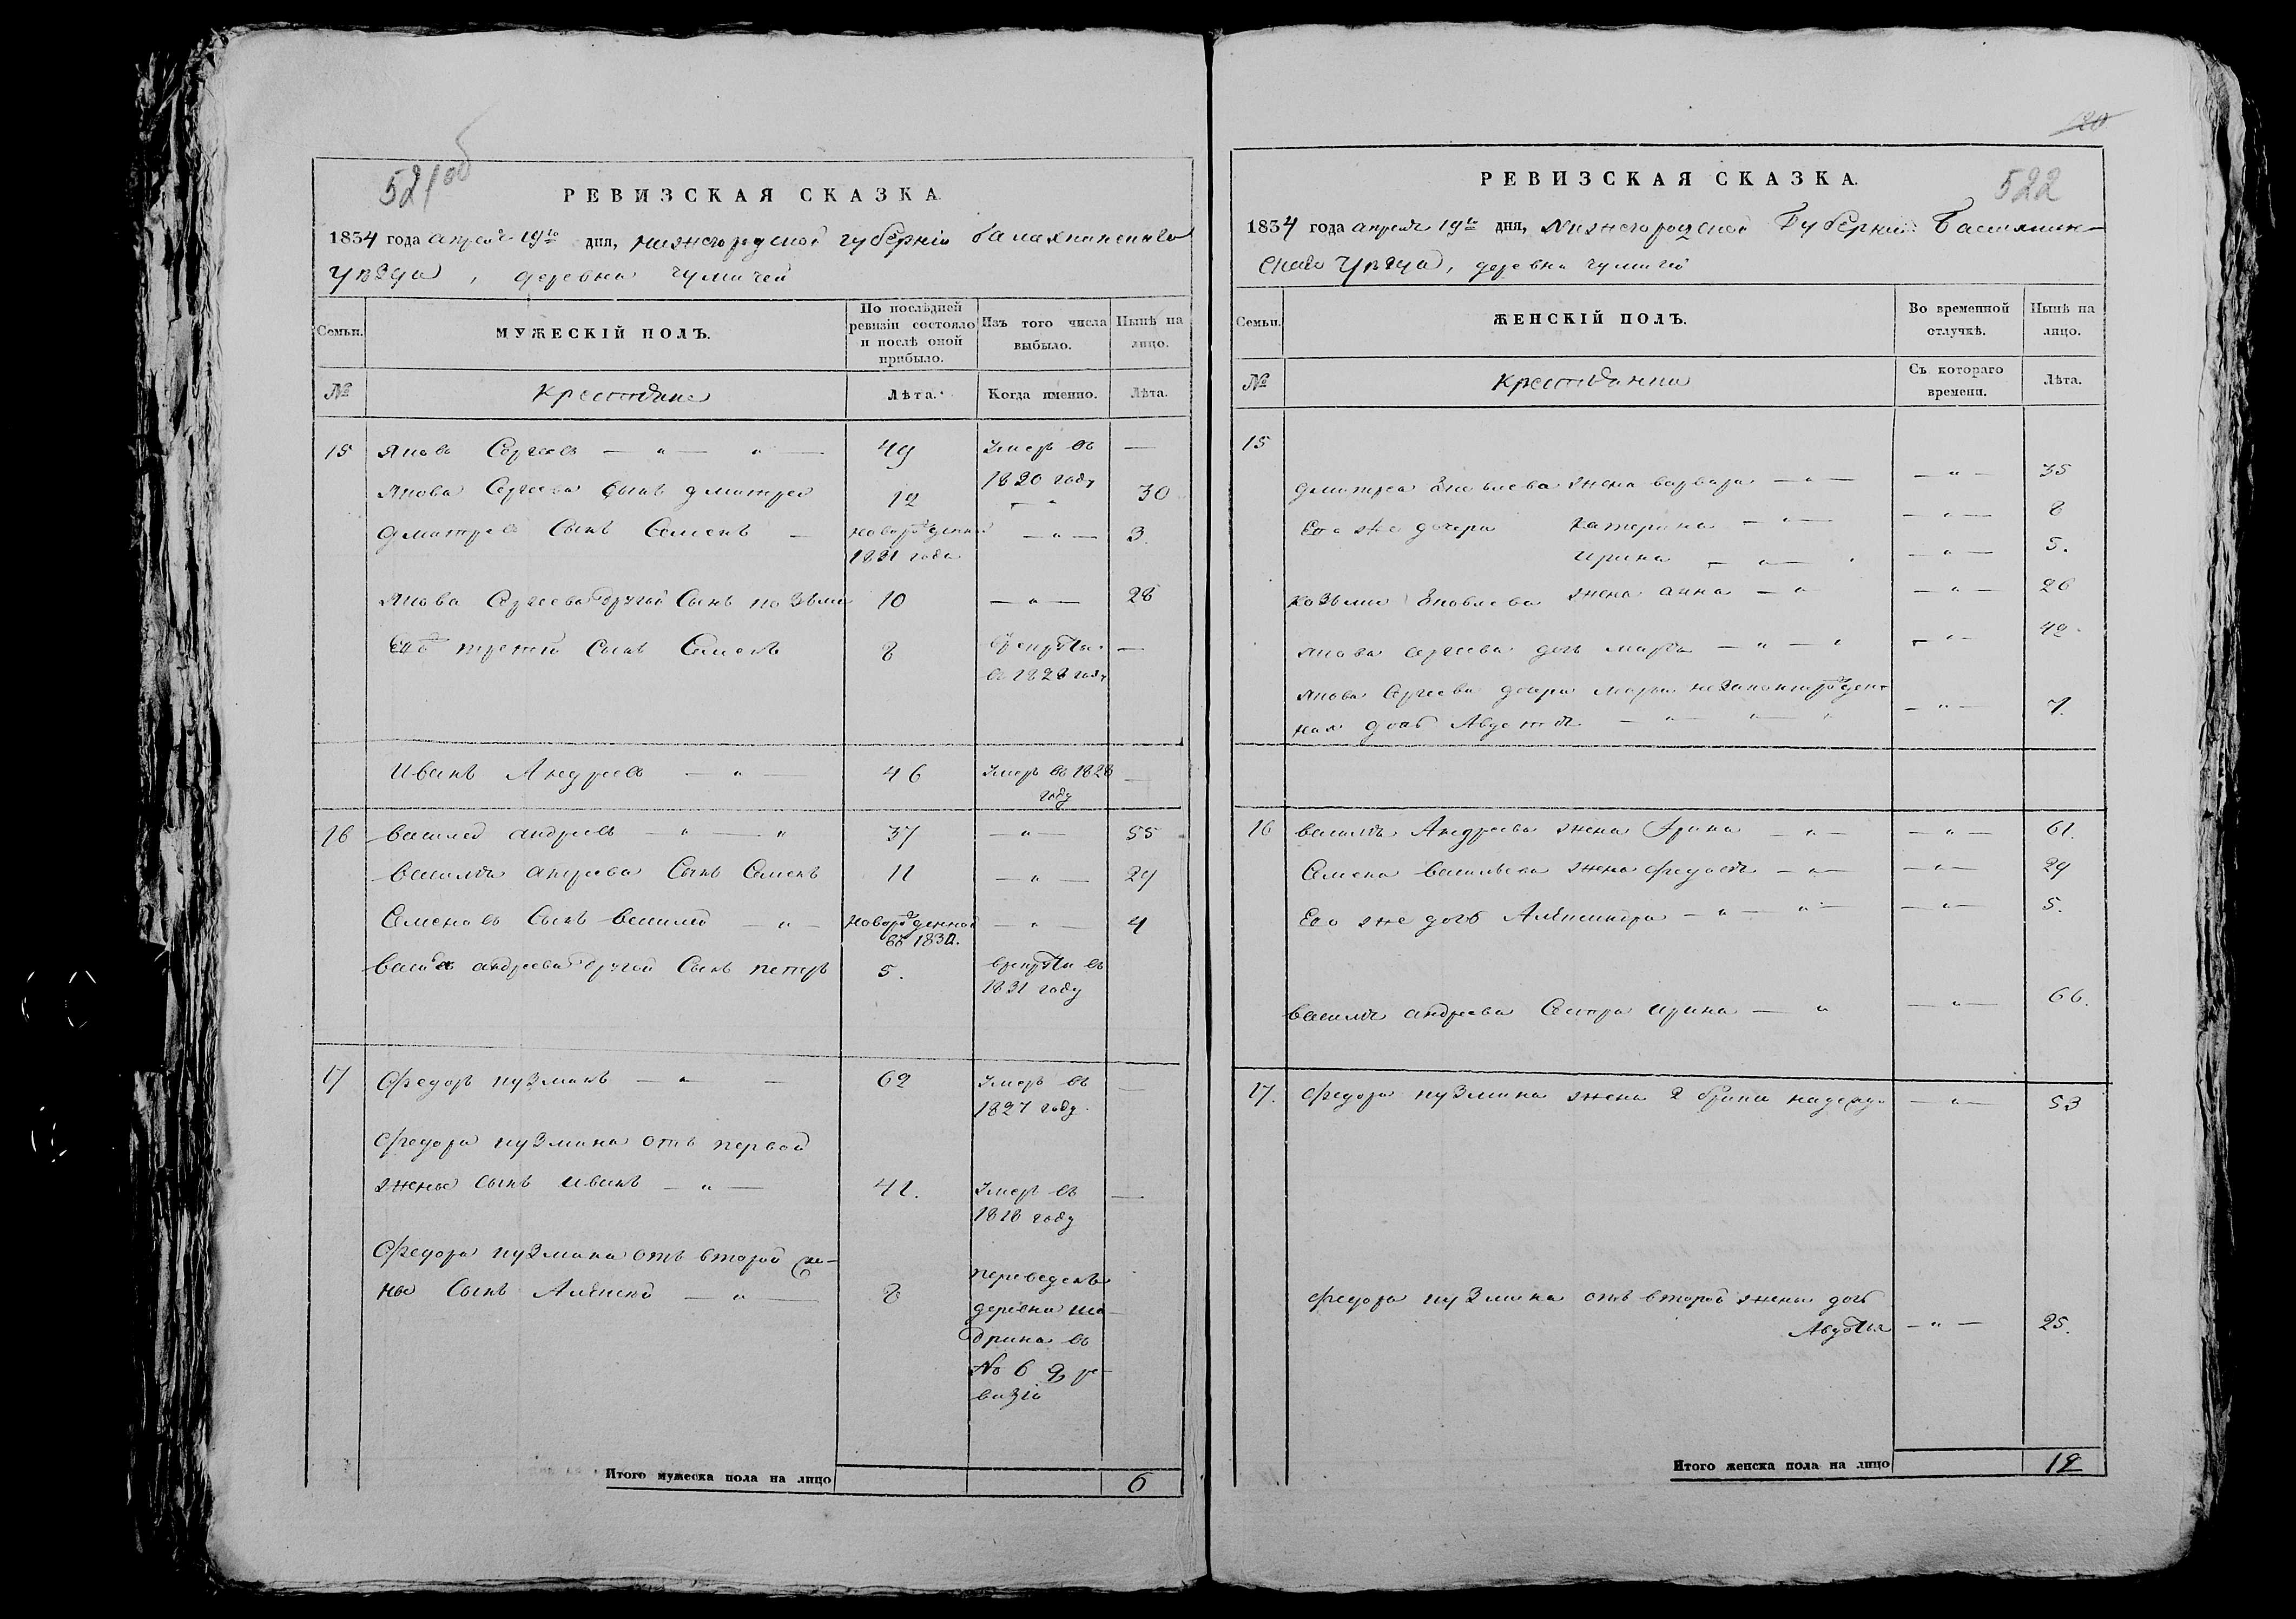 521об
РЕВИЗСКАЯ СКАЗКА.
1834 года апреля 19го дня, нижегородской губернiи балахнинскаго
уѣзда, деревни чумичей
Семьи.
МУЖЕСКIЙ ПОЛЪ.
По послѣдней ревизiи состояло и послѣ оной прибыло.
Изъ того числа выбыло.
Нынѣ на лицо.
№
крестьяне
Лѣта.
Когда именно.
Лѣта.
15 яковъ Сергеевъ — „ — „ — 49 Умеръ въ —
1820 году
якова Сергеева сынъ дмитрей 12 — „ 30
дмитрев Сынъ Семенъ — новорожденной — „ — 3.
1831 года
якова Сергеева другой Сынъ козьма 10 — „ — 28
Его третiй Сынъ Семенъ 8 в рекруты —
въ 1828 году
Иванъ Андреевъ — „ — 46 Умеръ въ 1828 —
году
16 василей андреевъ — „ — „ 37 — „ — 55
василья андреева Сынъ Семенъ 11 — „ — 29
Семеновъ Сынъ василей — „ — новорожденной — „ — 4
въ 1830.
василья андреева другой Сынъ петръ 5. в рекруты въ
1831 году
17 Федоръ кузминъ — „ — 62 Умеръ въ —
1827 году.
Федора кузмина отъ первой
жены сынъ иванъ — „ — 41. Умеръ въ —
1818 году
Федора кузмина отъ второй же-
ны Сынъ Алексей — „ — 8 переведенъ
деревни ша-
дрина въ
№ 6 ре-
визiю
Итого мужеска пола на лицо 6
20
522
РЕВИЗСКАЯ СКАЗКА.
1834 года апреля 19го дня, Нижегородской Губернiи Балахнин-
скаго уѣзда, деревни чумичей
Семьи.
ЖЕНСКIЙ ПОЛЪ.
Во временной отлучкѣ.
Нынѣ на лицо.
№
крестьянки
Съ котораго времени.
Лѣта.
15
дмитрея Яковлева жена варвара — „ — — „ — 35
Его же дочери катерина — „ — — „ — 8
ирина — „ — — „ — 5.
козьмы Яковлева жена анна — „ — „ — 26
якова сергеева дочь марья — „ — „ — „ —
якова Сергеева дочери марьи незаконнорожден-
ная дочь Авдотья — „ — „ — — „ — 7.
16 василья Андреева жена Арина — „ — — „ — 61.
Семена васильева жена федосья — „ — — „ — 29
Его же дочь Александра — „ — „ — — „ — 5.
василья андреева Сестра ирина — „ — „ — 66.
17. Федора кузмина жена 2 брака надежда — „ — 53
федора кузмина отъ второй жены дочь
Авдотья — „ — 25.
Итого женска пола на лицо 12